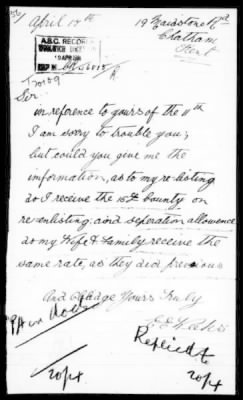 April 17th 19 Maidstone Rd
Chatham
Kent
A.S.C. RECORDS
19 APR
Sir
in reference to yours of the 11th
I am sorry to trouble you;
but could you give me the
information, as to my re-listing
do I receive the 15£ bounty on
re-enlisting; and seperation allowance
as my Wife & Family receive the
same rate, as they did previous
And Obliage Yours Truly
PA in
Replied to
20/4 20/4